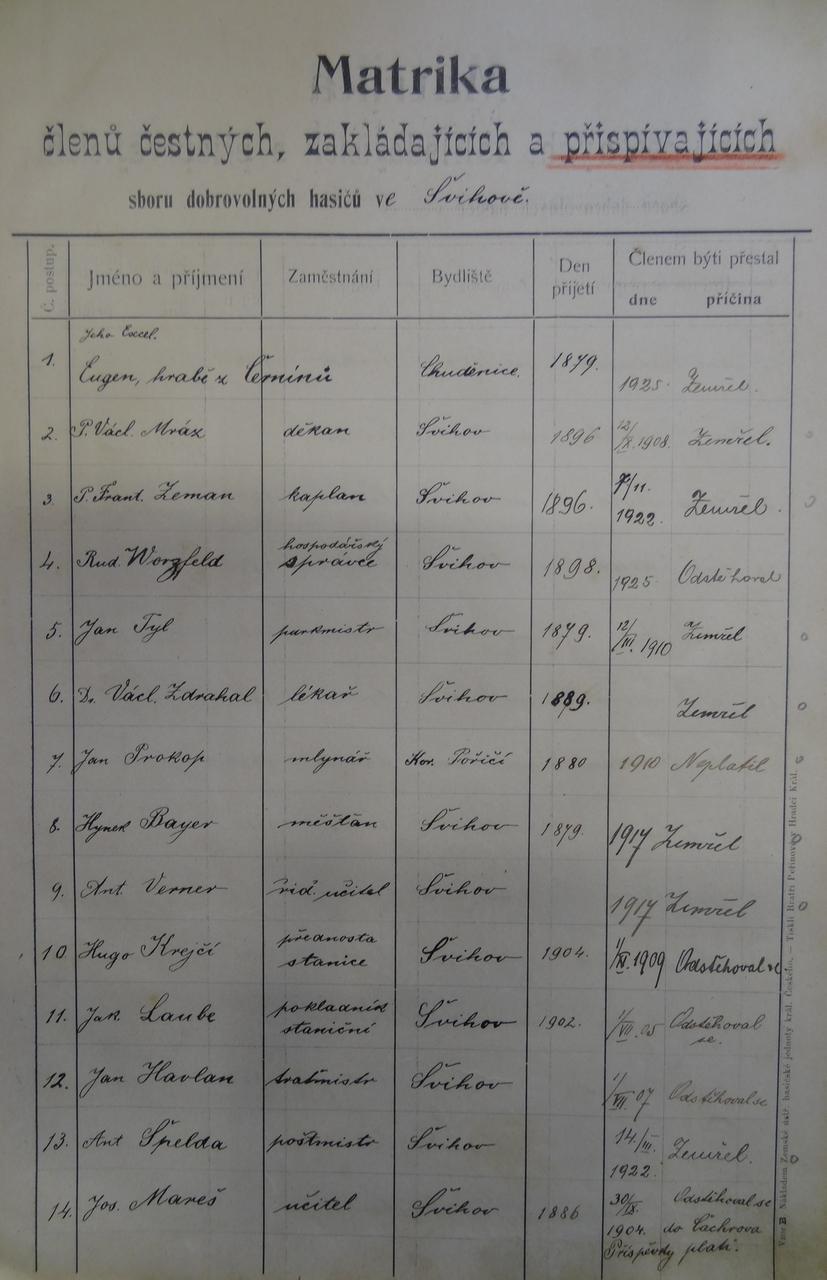 Matrika
členů čestných, zakládajících a přispívajících
sboru dobrovolných hasičů ve Švihově.
Č. postup. Jméno a příjmení Zaměstnání Bydliště Den přijetí Členem býti přestal
dne příčina
Jeho Excel.
1. Eugen, hrabě z Černínů Chuděnice. 1879. 1925. Zemřel.
2. P. Václ. Mráz děkan Švihov 1896 12/X. 1908. Zemřel.
3. P. Frant. Zeman kaplan Švihov 1896. 7/11. 1922. Zemřel.
4. Rud. Worzfeld hospodářský správce Švihov 1898. 1925. Odstěhoval
5. Jan Tyl purkmistr Švihov 1879. 12/III. 1910 Zemřel
6. Dr. Václ. Zdrahal lékař Švihov 1889. Zemřel
7. Jan Prokop mlynář Kor. Poříčí 1880 1910 Neplatil
8. Hynek Bayer měšťan Švihov 1879. 1917 Zemřel
9. Ant. Verner říd. učitel Švihov 1917 Zemřel
10. Hugo Krejčí přednosta stanice Švihov 1904. 1909 Odstěhoval se
11. Jak. Laube pokladník staniční Švihov 1902. 1/VII. 05 Odstěhoval se.
12. Jan Havlan traťmistr Švihov 1/VII. 07 Odstěhoval se
13. Ant Špelda poštmistr Švihov 14./III. 1922. Zemřel.
14. Jos. Mareš učitel Švihov 1886 30/IX. 1904. Odstěhoval se do Čachrova
Příspěvky platí.
Vzor B Nákladem Zemské ústř. hasičské jednoty král. Českého. — Tiskli Bratři Peřinové v Hradci Král.